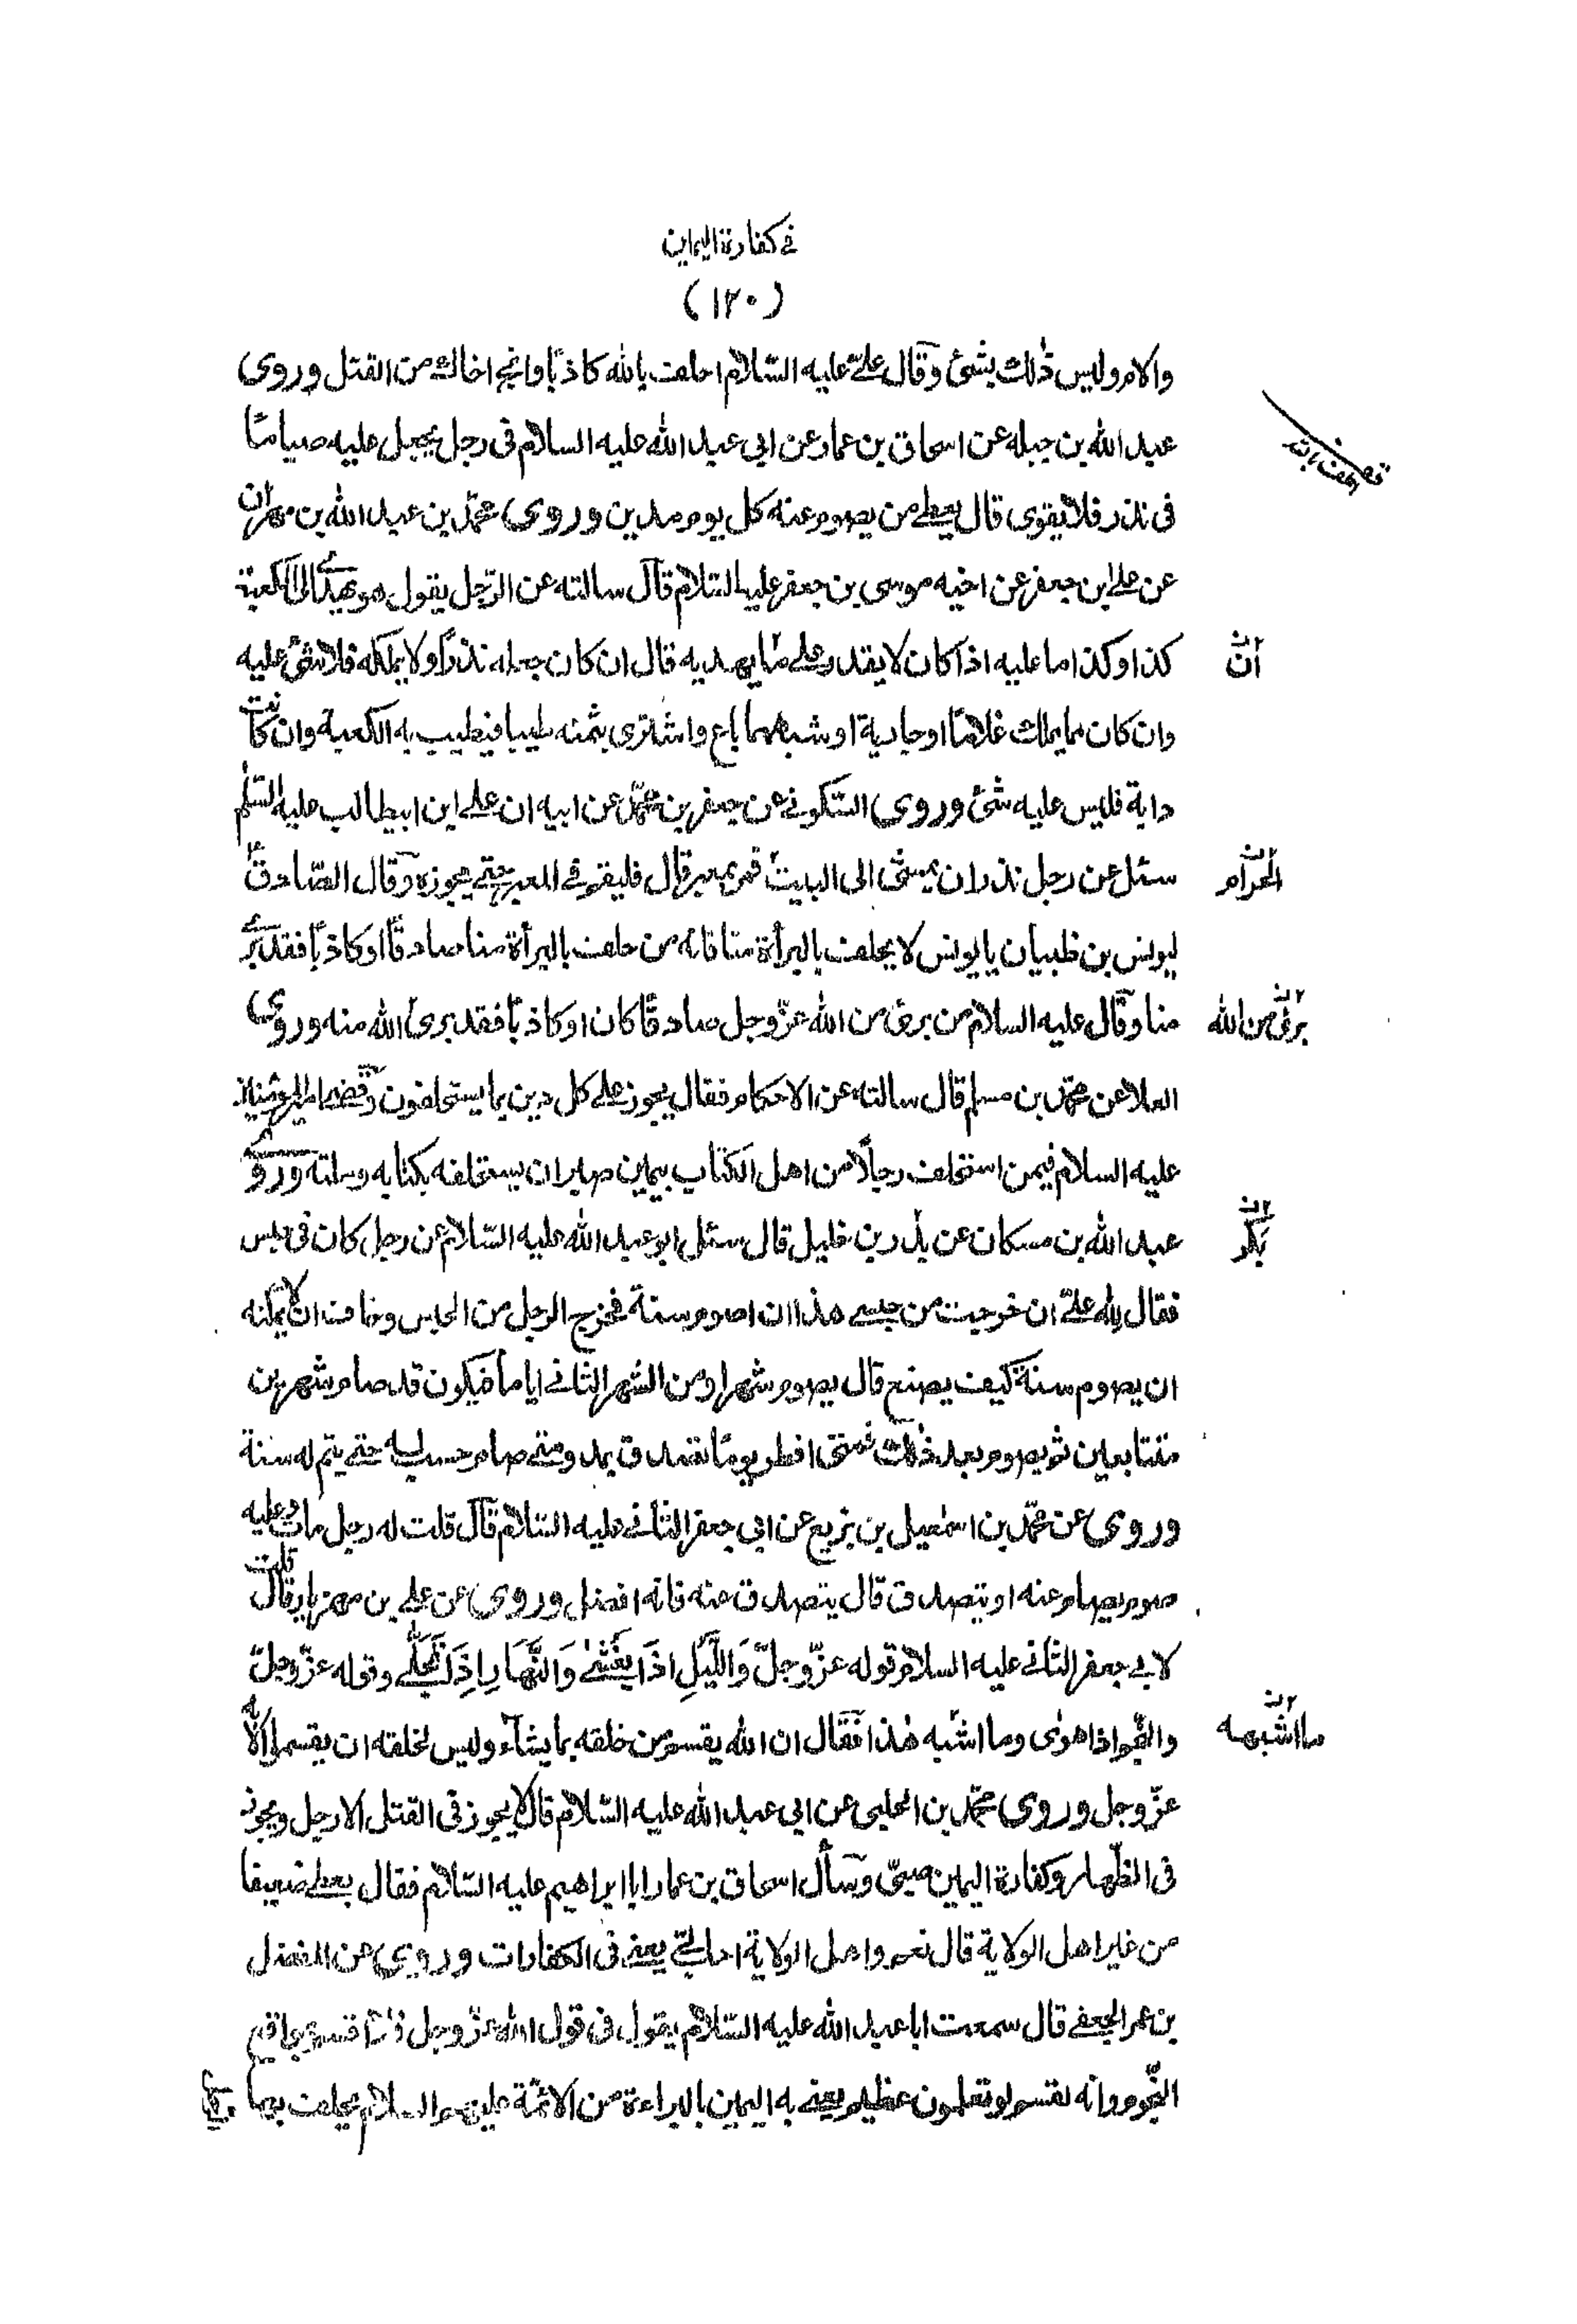 في كفارة اليمين
(١٢٠)
والام وليس ذلك بشئ وقال علي عليه السّلام احلف بالله كاذبًا وانج اخاك من القتل وروى
عبد الله بن جبله عن اسحاق بن عمار عن ابي عبد الله عليه السلام في رجل يجعل عليه صيامًا
في نذر فلا يقوى قال يعطي من يصوم عنه كل يوم مدين وروى محمّد بن عبد الله بن مهران
عن علي بن جعفر عن اخيه موسى بن جعفر عليه السّلام قال سالته عن الرّجل يقول هو يهدي الى الكعبة
كذا وكذا ما عليه اذا كان لا يقدر على ما يهديه قال ان كان جعله نذرًا ولا يملكه فلا شئ عليه
أنّ
وان كان مما يملك غلامًا او جارية او شبههما باع واشترى بثمنه طيبا فيطيب به الكعبة وان كانت
دابة فليس عليه شئ وروى السّكوني عن جعفر بن محمّد عن ابيه ان علي ابن ابيطالب عليه السّلم
سئل عن رجل نذر ان يمشي الى البيت فمر بمعبر قال فليقم في المعبر حتى يجوزه وقال الصّادق
الحرام
ليونس بن ظبيان يا يونس لا تحلف بالبرأة منا فانه من حلف بالبرأة منا صادقًا او كاذبًا فقد برئ
منا وقال عليه السلام من برئ من الله عزّ وجل صادقًا كان او كاذبًا فقد برئ الله منه وروى
برئ من الله
العلا عن محمّد بن مسلم قال سالته عن الاحكام فقال يجوز على كل دين بما يستحلفون وقضى امير المؤمنين
عليه السلام فيمن استحلف رجلًا من اهل الكتاب بيمين صبر ان يستحلفه بكتابه وملته وروى
عبد الله بن مسكان عن بدر بن خليل قال سئل ابو عبد الله عليه السّلام عن رجل كان في حبس
بكر
فقال لله عليّ ان خرجت من حبسي هذا ان اصوم سنة فخرج الرجل من الحبس وخاف ان لا يمكنه
ان يصوم سنة كيف يصنع قال يصوم شهرا ومن الشهر الثاني اياما فيكون قد صام شهرين
متتابعين ثم يصوم بعد ذلك فمتى افطر يومًا تصدق بمد ومتى صام حسب له حتى يتم له سنة
وروى عن محمّد بن اسمٰعيل بن بزيع عن ابي جعفر الثاني عليه السّلام قال قلت له رجل مات وعليه
صوم يصام عنه او يتصدق قال يتصدق عنه فانه افضل وروى عن علي بن مهزيار قال قلت
لابي جعفر الثاني عليه السلام قوله عزّ وجلّ وَاللَّيْلِ اِذَا يَغْشٰى وَالنَّهَارِ اِذَا تَجَلّٰى وقوله عزّ وجلّ
والنّجم اذا هوٰى وما اشبه هذا فقال ان الله يقسم من خلقه بما يشاء وليس لخلقه ان يقسموا الا به
ما اشبهه
عزّ وجل وروى محمّد بن الحلبي عن ابي عبد الله عليه السّلام قال لا يجوز في القتل الا رجل ويجوز
في الظّهار وكفارة اليمين صبيّ وسأل اسحاق بن عمار ابا ابراهيم عليه السّلام فقال يعطي ضعيفا
من غير اهل الولاية قال نعم واهل الولاية احب اليّ يعني في الكفارات وروى عن المفضل
بن عمر الجعفي قال سمعت ابا عبد الله عليه السّلام يقول في قول الله عزّ وجل فلا اقسم بمواقع
النّجوم وانّه لقسم لو تعلمون عظيم يعني به اليمين بالبراءة من الائمّة عليهم السلام يحلف بها